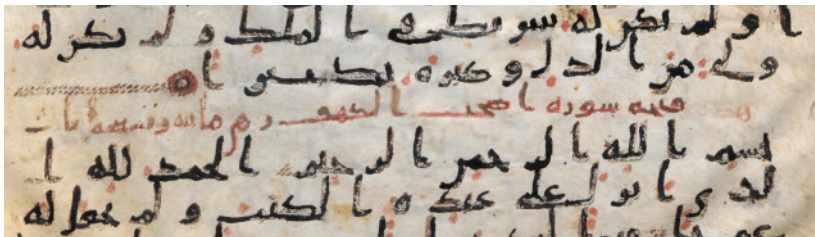 ا ولم يكن له شريك في الملك ولم يكن له
ولي من الذل وكبره تكبيرا
سورة اصحب الكهف وهي مائه وتسعه ايات
بسم الله الرحمن الرحيم الحمد لله ا
لذي انزل على عبده الكتب ولم يجعل له